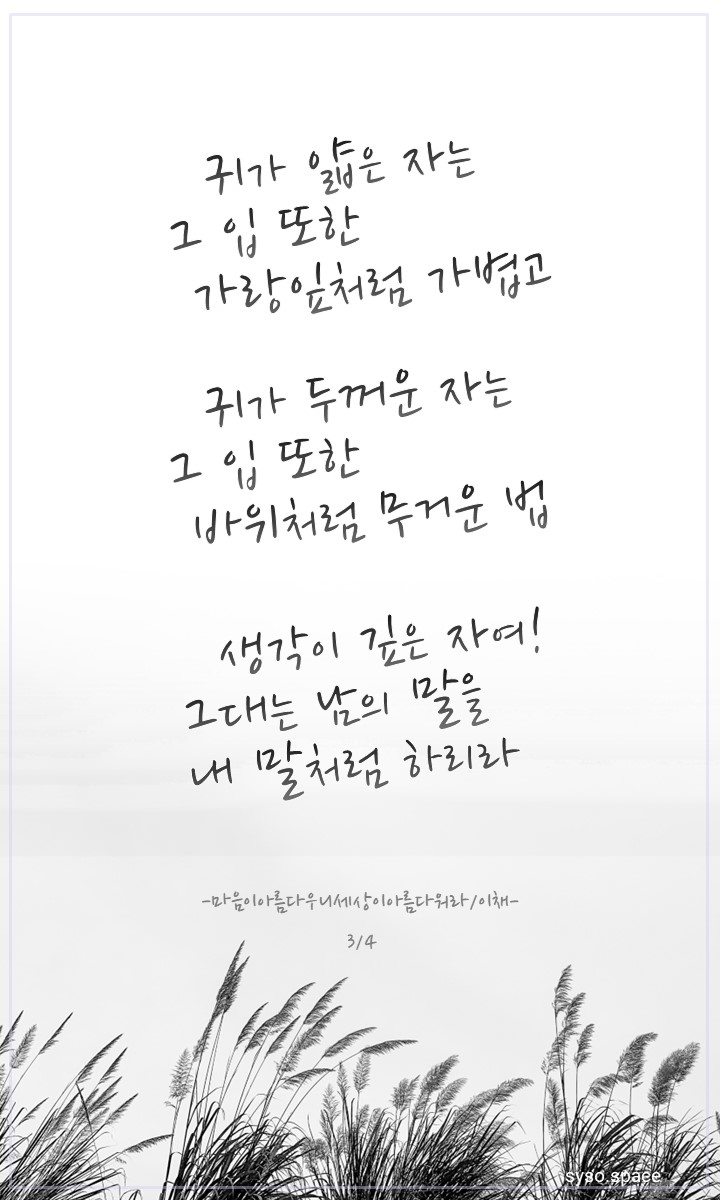 귀가 얇은 자는
그 입 또한
가랑잎처럼 가볍고
귀가 두꺼운 자는
그 입 또한
바위처럼 무거운 법
생각이 깊은 자여!
그대는 남의 말을
내 말처럼 하리라
-마음이아름다우니세상이아름다워라/이채-
3/4
syso.space